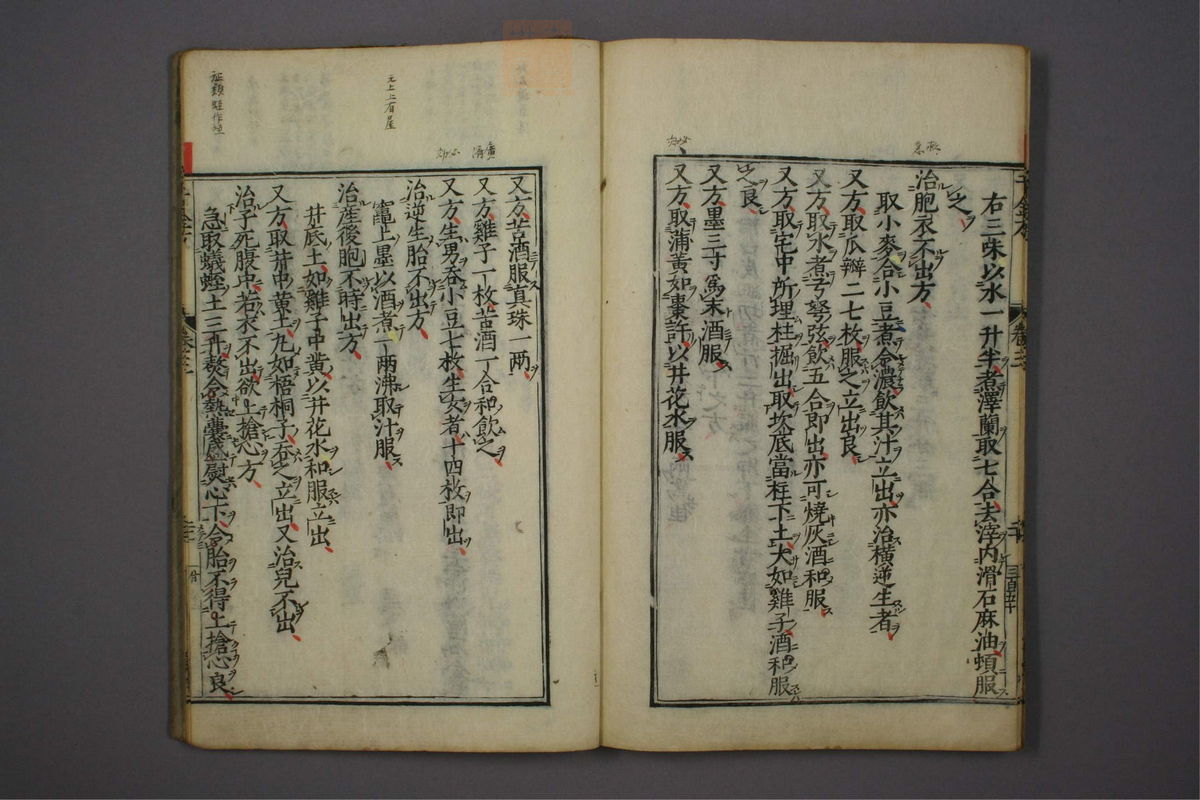 右三味以水一升半煮澤蘭取七合去滓內滑石麻油頓服
之
治胞衣不出方
取小麥合小豆煮令濃飲其汁立出亦治橫逆生者
又方取瓜瓣二七枚服之立出良
又方取水煮弓弩弦飲五合即出亦可燒灰酒和服
又方取宅中所埋柱掘出取坎底當柱下土大如雞子酒和服
之良
又方墨三寸爲末酒服
又方取蒲黃如棗許以井花水服
又方苦酒服真珠一兩
又方雞子一枚苦酒一合和飲之
又方生男吞小豆七枚生女者十四枚即出
治逆生胎不出方
竈上墨以酒煮一兩沸取汁服
治産後胞不時出方
井底土如雞子中黃以井花水和服立出
又方取井中黃土丸如梧桐子吞之立出又治兒不出
治子死腹中若衣不出欲上搶心方
急取蟻蛭土三升熬令熱囊盛熨心下令胎不得上搶心良
元上上有屋